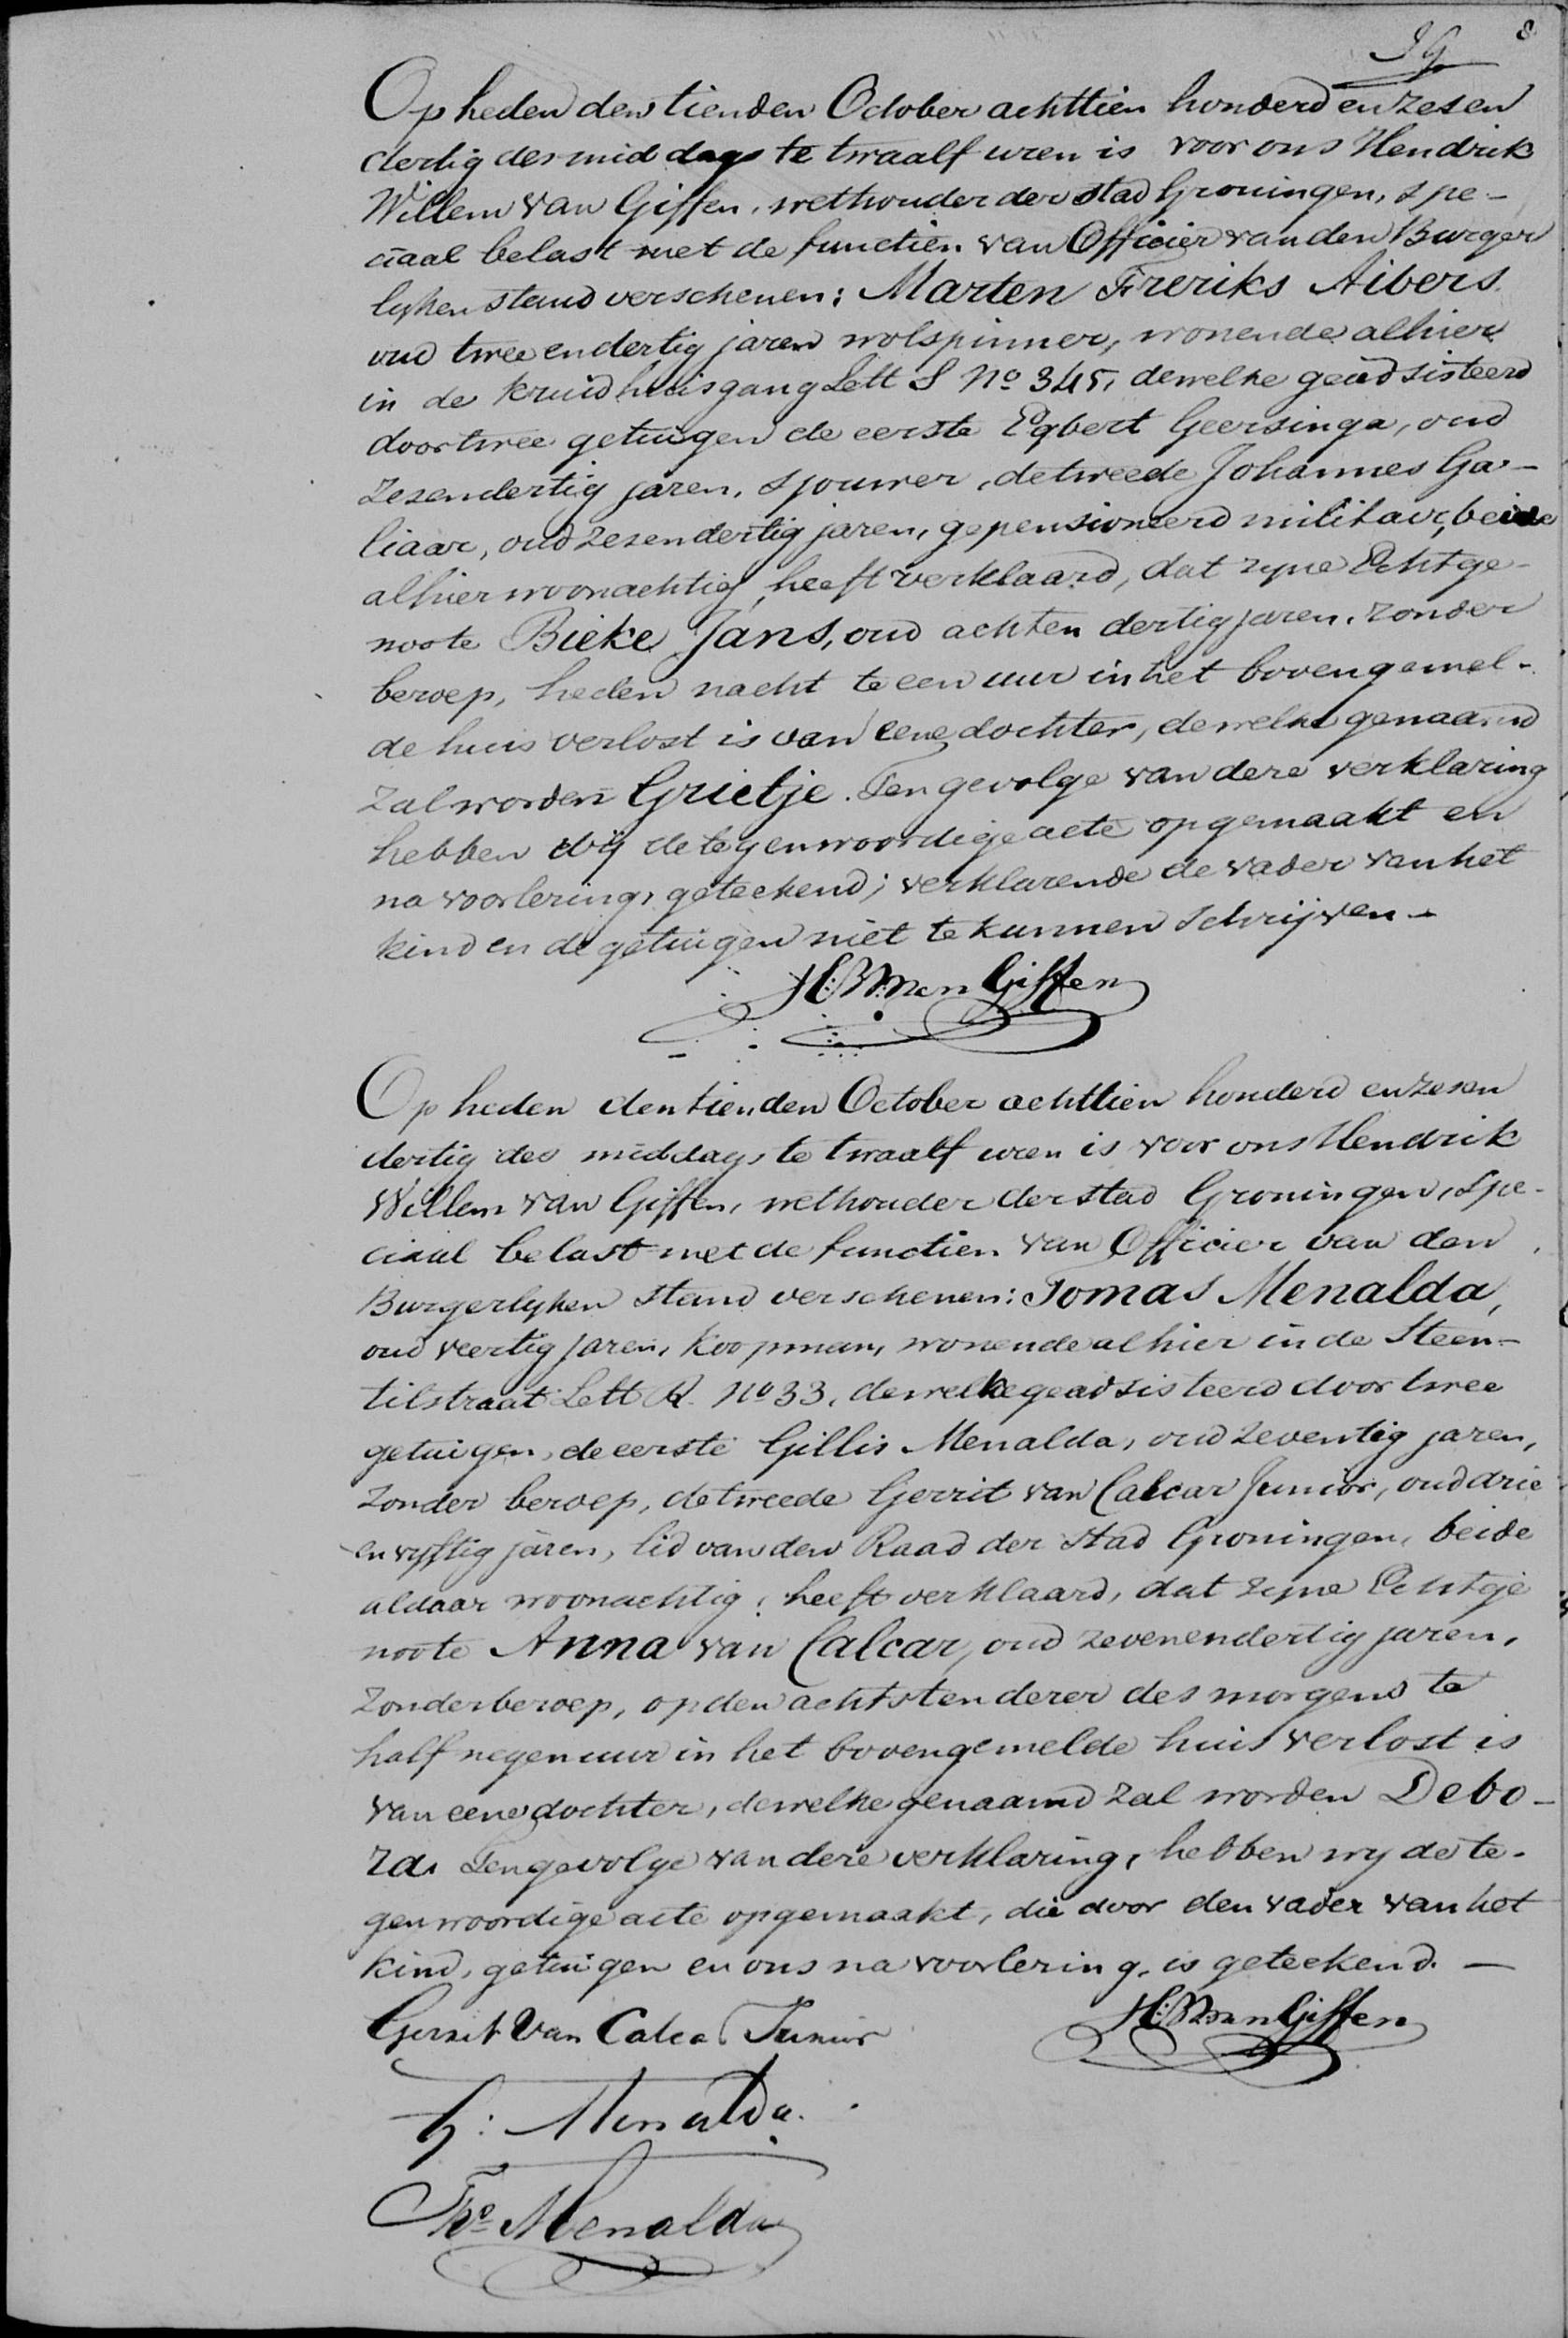 8
Op heden den tienden October achttien honderd en zesen
dertig des middags te twaalf uren is voor ons Hendrik
Willem van Giffen, wethouder der stad Groningen, spe-
ciaal belast met de functien van Officier van den Burger
lyken stand verschenen: Marten Freriks Aibers
oud twee en dertig jaren wolspinner, wonende alhier
in de kruidhuisgang Lett S No 345, dewelke geadsisteerd
door twee getuigen de eerste Egbert Geersinga, oud
zesendertig jaren, sjouwer, de tweede Johannes Ga-
liaar, oud zesendertig jaren, gepensioneerd militair, beide
alhier woonachtig, heeft verklaard, dat zyne Echtge-
noote Bieke Jans, oud achten dertig jaren, zonder
beroep, heden nacht te een uur in het bovengemel-
de huis verlost is van eene dochter, dewelke genaamd
zal worden Grietje. Ten gevolge van deze verklaring
hebben wij de tegenwoordige acte opgemaakt en
na voorlezing, geteekend; verklarende de vader van het
kind en de getuigen niet te kunnen schrijven. -
H: W: van Giffen
Op heden den tienden October achttien honderd en zesen
dertig des middags te twaalf uren is voor ons Hendrik
Willem van Giffen, wethouder der stad Groningen, spe-
ciaal belast met de functien van Officier van den
Burgerlyken stand verschenen: Tomas Menalda,
oud veertig jaren, koopman, wonende alhier in de Steen-
tilstraat Lett R. No 33, dewelke geadsisteerd door twee
getuigen, de eerste Gillis Menalda, oud zeventig jaren,
zonder beroep, de tweede Gerrit van Calcar Junior, oud drie
en vyftig jaren, lid van den Raad der stad Groningen, beide
aldaar woonachtig, heeft verklaard, dat zyne Echtge
noote Anna van Calcar, oud zevenendertig jaren,
zonder beroep, op den achtsten dezer des morgens te
half negen uur in het bovengemelde huis verlost is
van eene dochter, dewelke genaamd zal worden Debo-
ra. Ten gevolge van deze verklaring, hebben wy de te-
genwoordige acte opgemaakt, die door den vader van het
kind, getuigen en ons na voorlezing, is geteekend. -
Gerrit Van Calcar Junior
H: W: van Giffen
G: Menalda.
Ts Menalda